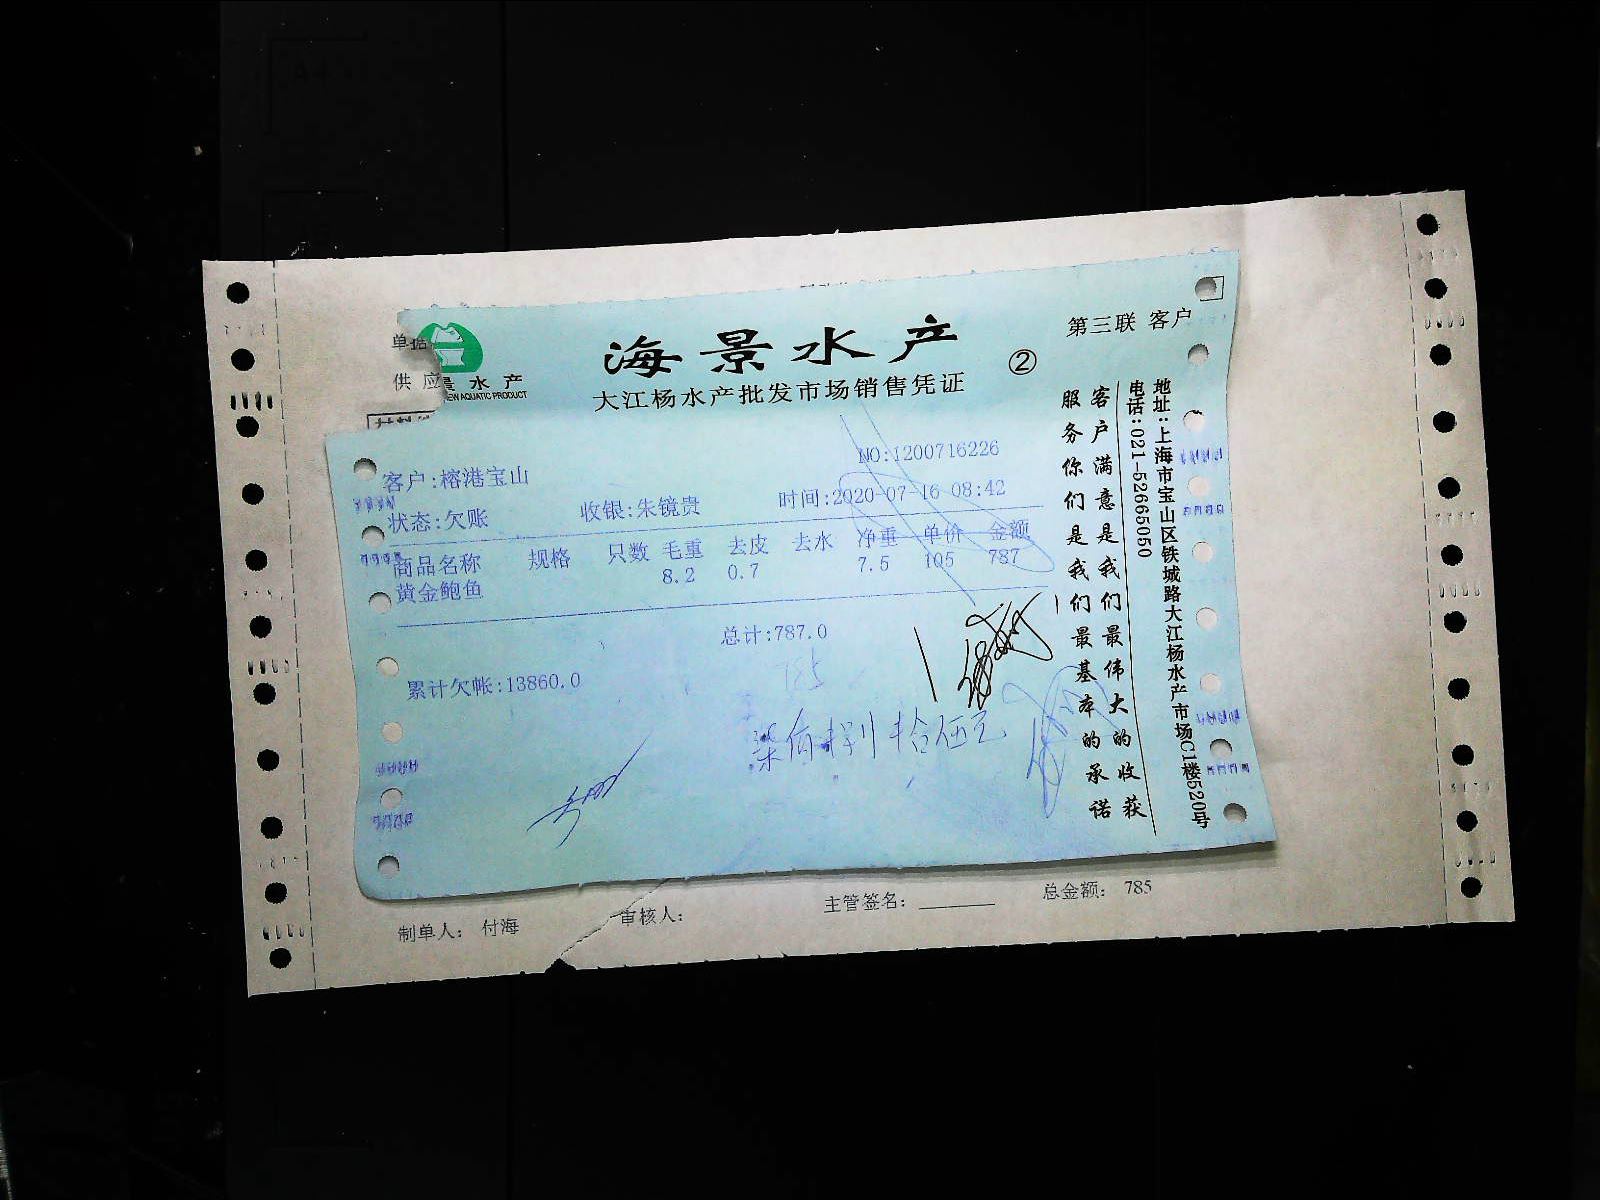 单据
供应
景水产
EW AQUATIC PRODUCT
海景水产
大江杨水产批发市场销售凭证
②
第三联 客户
NO:1200716226
客户:榕港宝山
状态:欠账 收银:朱镜贵 时间:2020-07-16 08:42
商品名称 规格 只数 毛重 去皮 去水 净重 单价 金额
黄金鲍鱼 8.2 0.7 7.5 105 787
总计:787.0
785
累计欠帐:13860.0
柒佰捌拾伍元
客户满意是我们最伟大的收获
服务你们是我们最基本的承诺
地址:上海市宝山区铁城路大江杨水产市场C1楼520号
电话:021-52665050
制单人: 付海 审核人: 主管签名: 总金额: 785